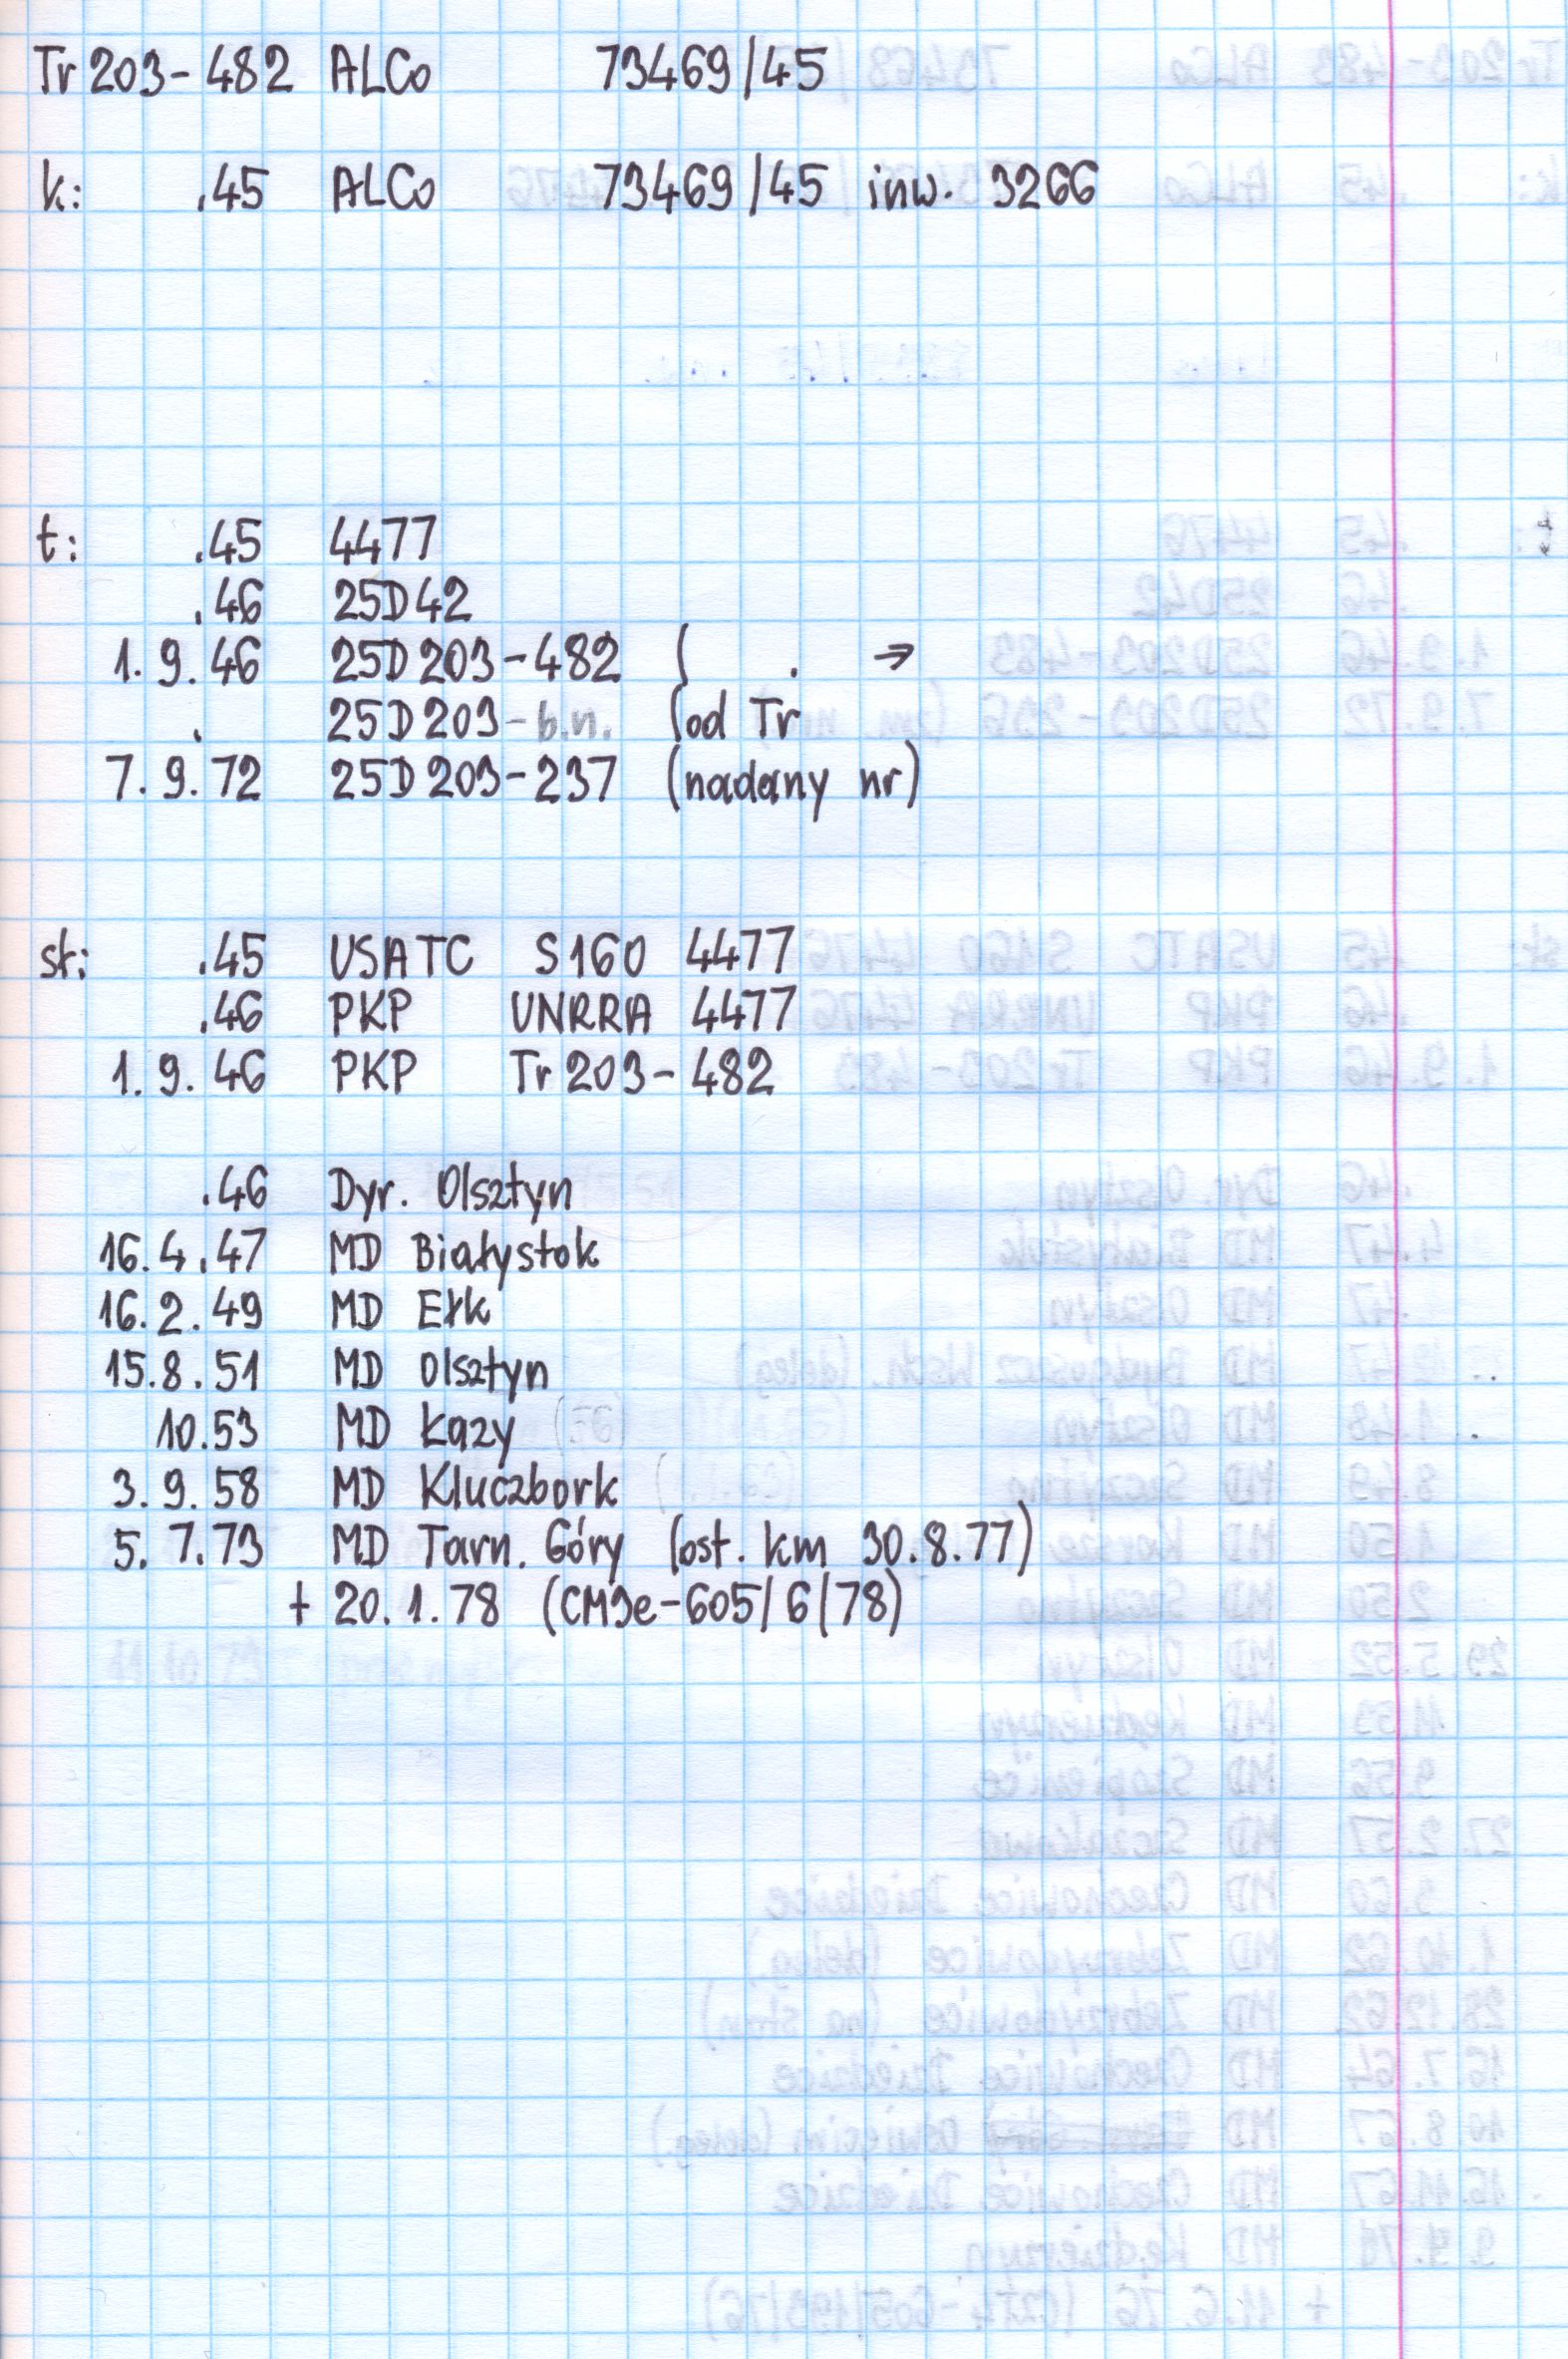 Tr 203-482 ALCo 73469/45
k: .45 ALCo 73469/45 inw. 3266
t: .45 4477
.46 25D42
1.9.46 25D203-482 ( . →
. 25D203-b.n. (od Tr
7.9.72 25D203-237 (nadany nr)
st: .45 USATC S160 4477
.46 PKP UNRRA 4477
1.9.46 PKP Tr203-482
.46 Dyr. Olsztyn
16.4.47 MD Białystok
16.2.49 MD Ełk
15.8.51 MD Olsztyn
10.53 MD Łazy (EG)
3.9.58 MD Kluczbork
5.7.73 MD Tarn. Góry (ost. km 30.8.77)
+ 20.1.78 (CM9e-605/6/78)